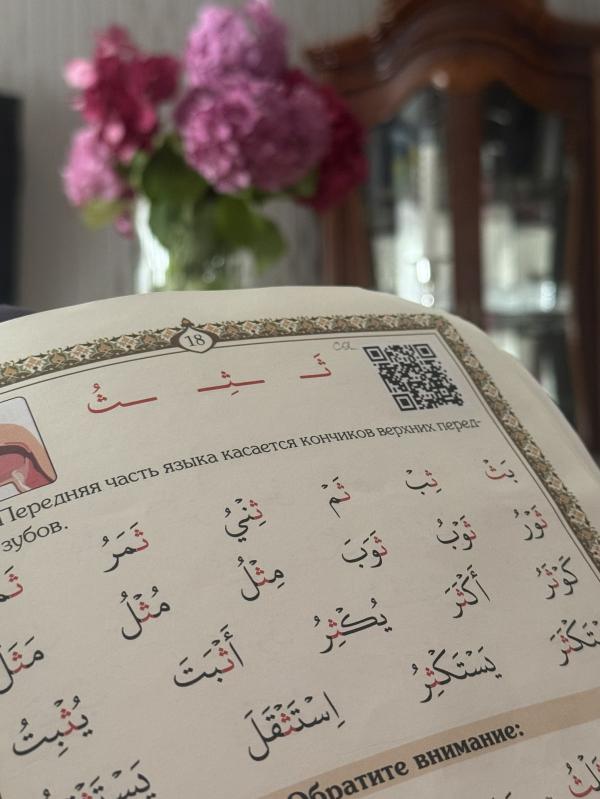 18
ثَـ ـثِـ ـثُ
Передняя часть языка касается кончиков верхних перед-
зубов.
بَثْ ثِبْ ثَمْ ثِنْيُ ثَمَرُ
ثَوْرُ ثَوْبُ ثَوَبَ مِثْلُ مُثْلُ مَثَلَ
كَوْثَرُ أَكْثَرَ يُكْثِرُ أَثْبَتَ يُثْبِتُ
يَسْتَكْثِرُ اِسْتَثْقَلَ
Обратите внимание: